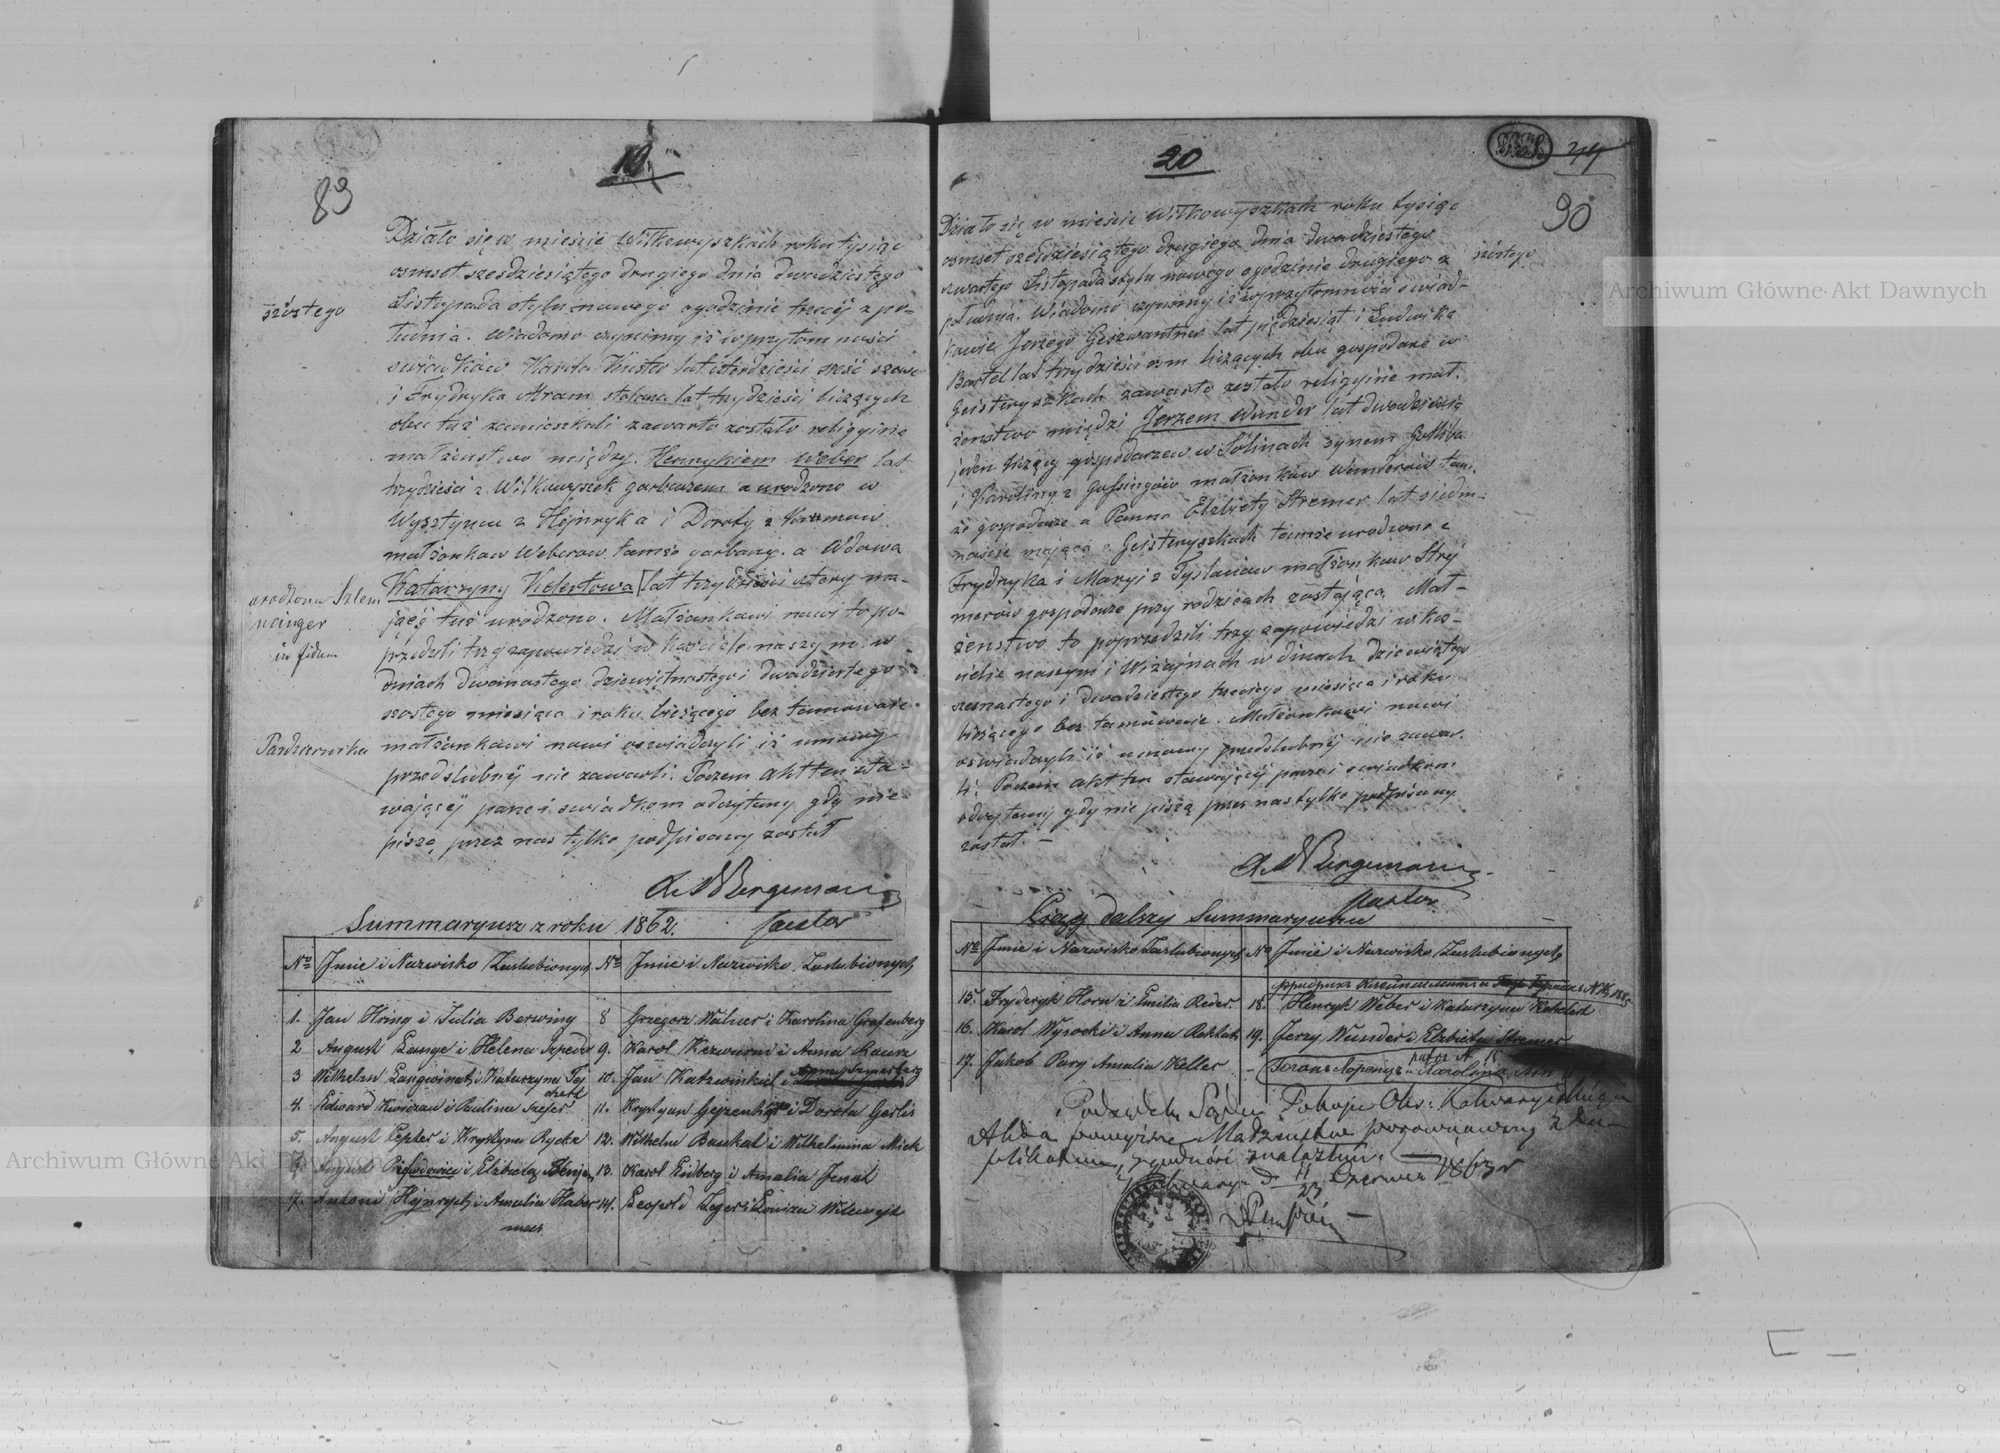 83
20
44
90
Działo się w mieście Wiłkowyszkach roku tysiąc
osmset szesdziesiątego drugiego dnia dwudziestego
szóstego
Listopada stylu nowego o godzinie trzeciej z po-
łudnia. Wiadomo czynimy iż w przytomności
swiadków Karola lat czterdzieści sześć
i Frydryka Abram stolarza lat trzydzieści liczących
obu tuż zamieszkali zawarte zostało religijne
małżeństwo między Henrykiem Weber lat
trzydzieści z Wiłkowyszek garbarzem a urodzono w
Wysztyncu z Hejnryka i Doroty z
małżonków Weberow tamże garbarzy a Wdową
urodzona Szlem
minger
in fidem
Katarzyną Kelertowa lat trzydzieści cztery ma-
jącą tuż urodzono. Małżeństwo to po-
przedziły trzy zapowiedzi w kościele naszym w
dniach dwunastego dziewiętnastego i dwudziestego
szostego miesiąca i roku bieżącego bez tamowanie
małżonkowie nowi oswiadczyli iż umowy
przedslubnej nie zawarli. Poczem akt ten sta-
wającej parze i swiadkom odczytany gdy nie
piszą przez nas tylko podpisany został
A. W Bergemann
pastor
Summaryusz z roku 1862.
No Jmie i Nazwisko Zaslubionych No Jmie i Nazwisko Zaslubionych
1. Jan Hring i Julia Berwing 8 Grzegorz Walner i Karolina Grafenberg
2 August Lange i Helena 9. Karol i Anna Rausz
3 Wilhelm Langwinat i Katarzyna 10. Jan Katzwinkiel i
4. Edward i Paulina Szefer 11. Krystyan i Dorota Gerlis
5. August Pepler i Krystyna Rycke 12. Wilhelm Baukat i Wilhelmina Mick
August i Elzbieta 13. Karol Eidberg i Amalia Jenat
7. Antoni Hejnrych i Amalia Haber 14. Leopold Zeger i Lowiza
maer
Działo się w mieście Wiłkowyszkach roku tysiąc
osmset szesdziesiątego drugiego dnia dwudziestego
szóstego
czwartego Listopada stylu nowego o godzinie drugiego z
południa. Wiadomo czynimy iż w przytomności swiad-
kowie Jerzego Geszwantner lat pięćdziesiąt i Ludwika
Bartel lat trzydzieści osm liczących obu gospodarze w
Geisteryszkach zawarte zostało religijne mał-
żenstwo między Jerzem Wunder lat dwadzieścia
jeden liczący gospodarzem w Solinach synem Gottliba
i Karoliny z małżonków Wunderow tam-
że gospodarze a Panną Elzbietą Stremer lat siedm-
nascie mającą z Geisteryszkach tamże urodzona z
Frydryka i Maryi z małżonków Stry
merów gospodarze przy rodzicach zostająca. Mał-
żeństwo to poprzedzili trzy zapowiedzi w kos-
ciele naszym i Wizajnach w dniach dziewiątego
szesnastego i dwudziestego trzeciego miesiąca i roku
bieżącego bez tamowanie. Małżonkowie nowi
oswiadczyli iż umowy przedslubnej nie zawar-
li. Poczem akt ten stawającej parze i swiadkom
odczytany gdy nie piszą przez nas tylko podpisany
został. —
A. W Bergemann
Pastor
Ciąg dalszy Summaryuszu
No Jmie i Nazwisko Zaslubionych No Jmie i Nazwisko Zaslubionych
15. Fryderyk Horn i Emilia Reder 18. Henryk Weber i Katarzyna Kehelert
16. Karol Wysocki i Anna Reklat 19. Jerzy Wunder i Elzbieta Stremer
17. Jakob Pary Amalia Keller
Podsędek Sądu Pokoju Okr:
Akta powyższe Małżeństw porównawszy z Du-
plikatem zgodność znalazłem.
11/23 Czerwca 1863 r
Archiwum Główne Akt Dawnych
Archiwum Główne Akt Dawnych